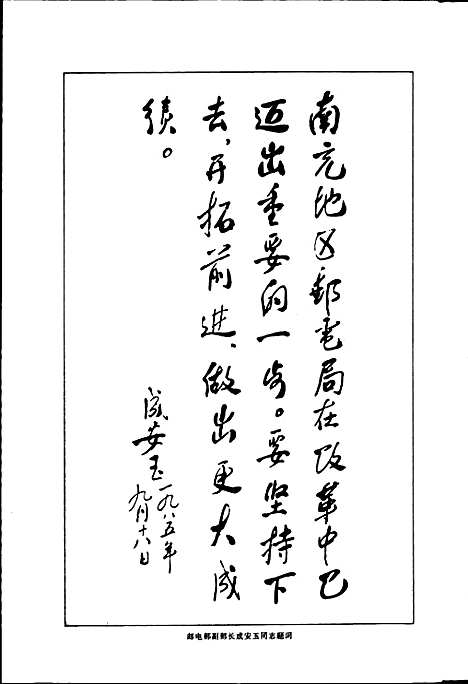 南充地区邮电局在改革中已
迈出重要的一步。要坚持下
去,开拓前进、做出更大成
绩。
成安玉
一九八五年
九月十八日
邮电部副部长成安玉同志题词